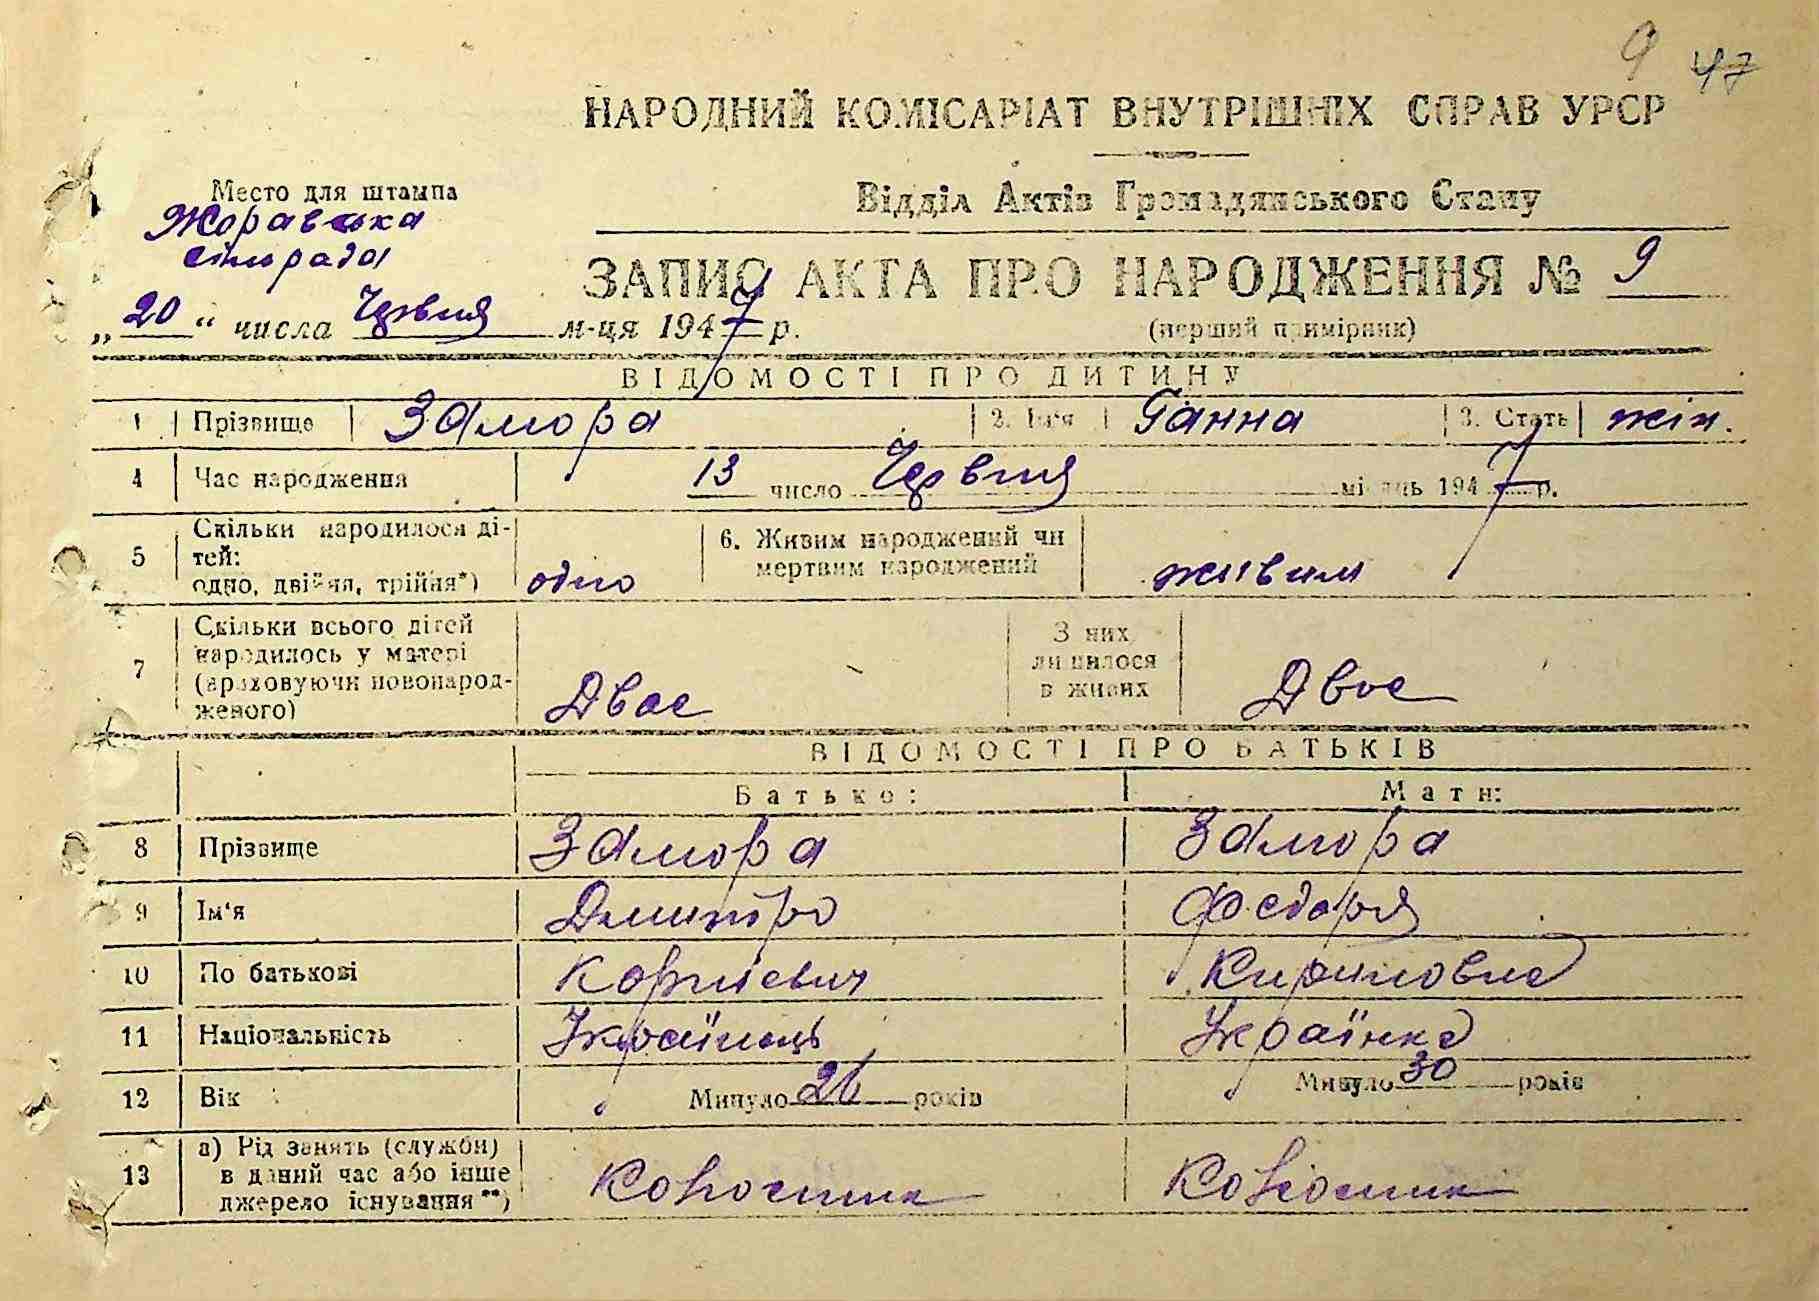 9 47
НАРОДНИЙ КОМІСАРІАТ ВНУТРІШНІХ СПРАВ УРСР
Место для штампа
Відділ Актів Громадянського Стану
Жоравська
сільрада
ЗАПИС АКТА ПРО НАРОДЖЕННЯ № 9
„20“ числа Червня м-ця 1947 р.
(перший примірник)
ВІДОМОСТІ ПРО ДИТИНУ
1 Прізвище Замора 2. Ім'я Ганна 3. Стать жін.
4 Час народження 13 число Червня місяць 1947 р.
5 Скільки народилося ді-
тей:
одно, двійня, трійня*) одно
6. Живим народжений чи
мертвим народжений живим
7 Скільки всього дітей
народилось у матері
(враховуючи новонарод-
женого) Двоє
З них
лишилося
в живих Двоє
ВІДОМОСТІ ПРО БАТЬКІВ
Батько: Мати:
8 Прізвище Замора Замора
9 Ім'я Дмитро Федора
10 По батькові Корнієвич Кириловна
11 Національність Українець Українка
12 Вік Минуло 26 років Минуло 30 років
13 а) Рід занять (служби)
в даний час або інше
джерело існування**) Колхосник Колхосник